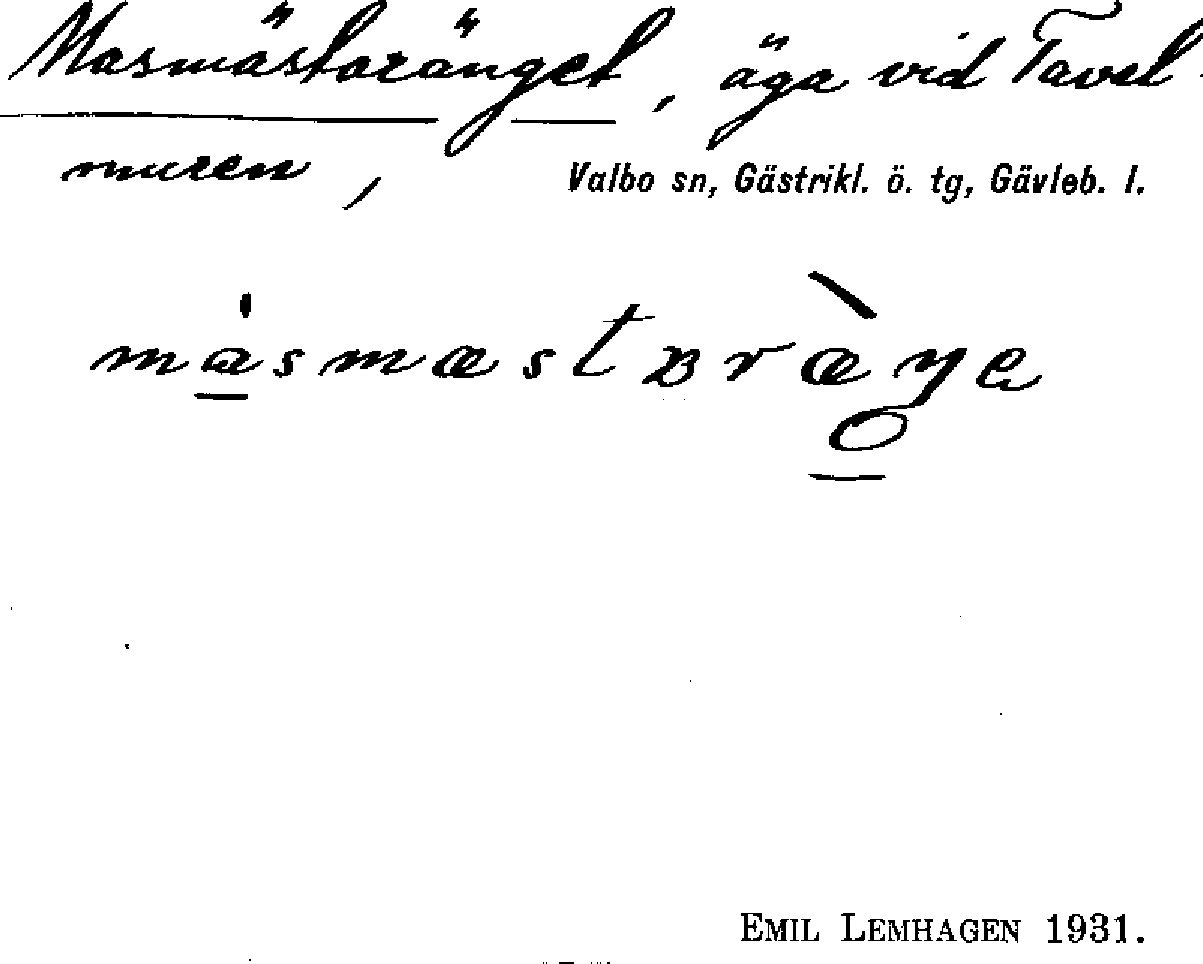 Masmästaränget, äga vid Tavel-
muren, Valbo sn, Gästrikl. ö. tg, Gävleb. l.
EMIL LEMHAGEN 1931.